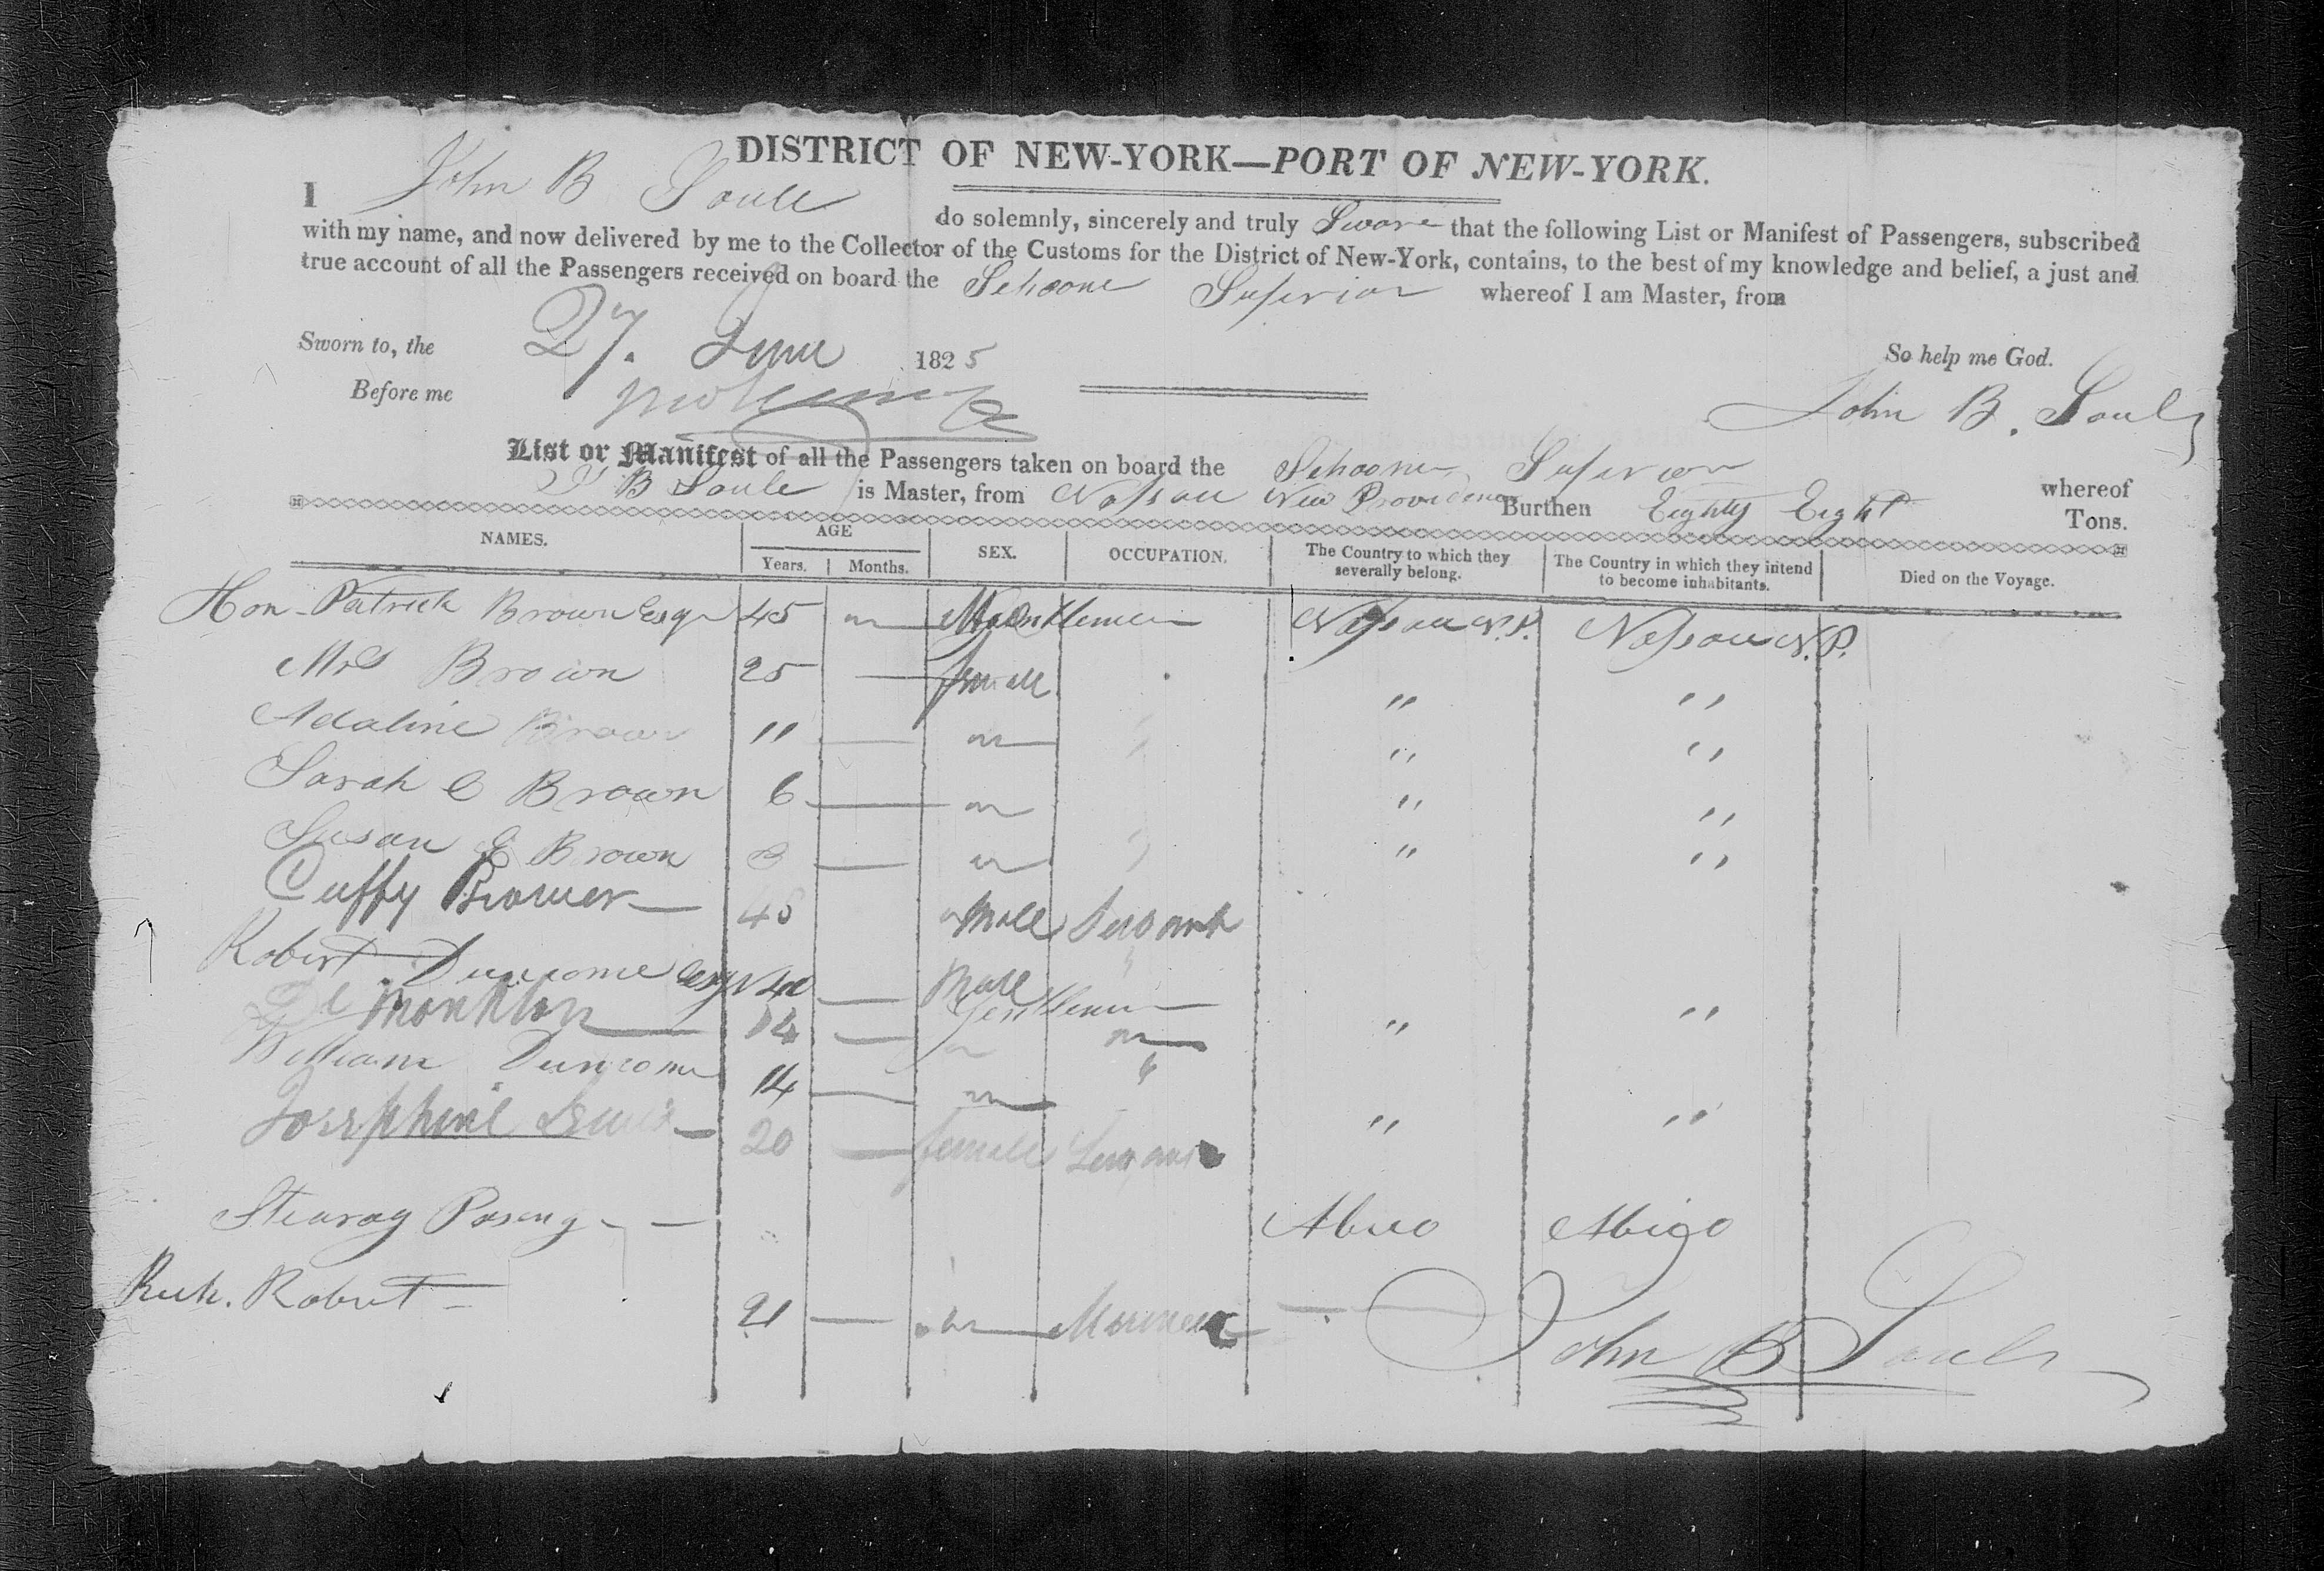 DISTRICT OF NEW-YORK—PORT OF NEW-YORK.
I John B Soule do solemnly, sincerely and truly Swore that the following List or Manifest of Passengers, subscribed
with my name, and now delivered by me to the Collector of the Customs for the District of New-York, contains, to the best of my knowledge and belief, a just and
true account of all the Passengers received on board the Schooner Superior whereof I am Master, from
Sworn to, the 27. June 1825 So help me God.
Before me John B. Soule
List or Manifest of all the Passengers taken on board the Schooner Superior whereof
J B Soule is Master, from Nassau New Providence Burthen Eighty Eight Tons.
NAMES. AGE Years. Months. SEX. OCCUPATION. The Country to which they severally belong. The Country in which they intend to become inhabitants. Died on the Voyage.
Hon. Patrick Brown Esqr 45 Gentlemen Nassau N.P. Nassau N.P.
Mrs Brown 25 — female " "
Adaline Brown 11 — " "
Sarah C Brown 6 — " "
Susan E Brown 3 — " "
Cuffy Brown — 45 Male Servant
Robert Duncome Esqr 40 — Male Gentlemen
Monkton 14 — " "
William Duncome 14 —
Josephine Lewis — 20 — female Servant " "
Abico Abico
Rich. Robert — 21 —
John B Soule